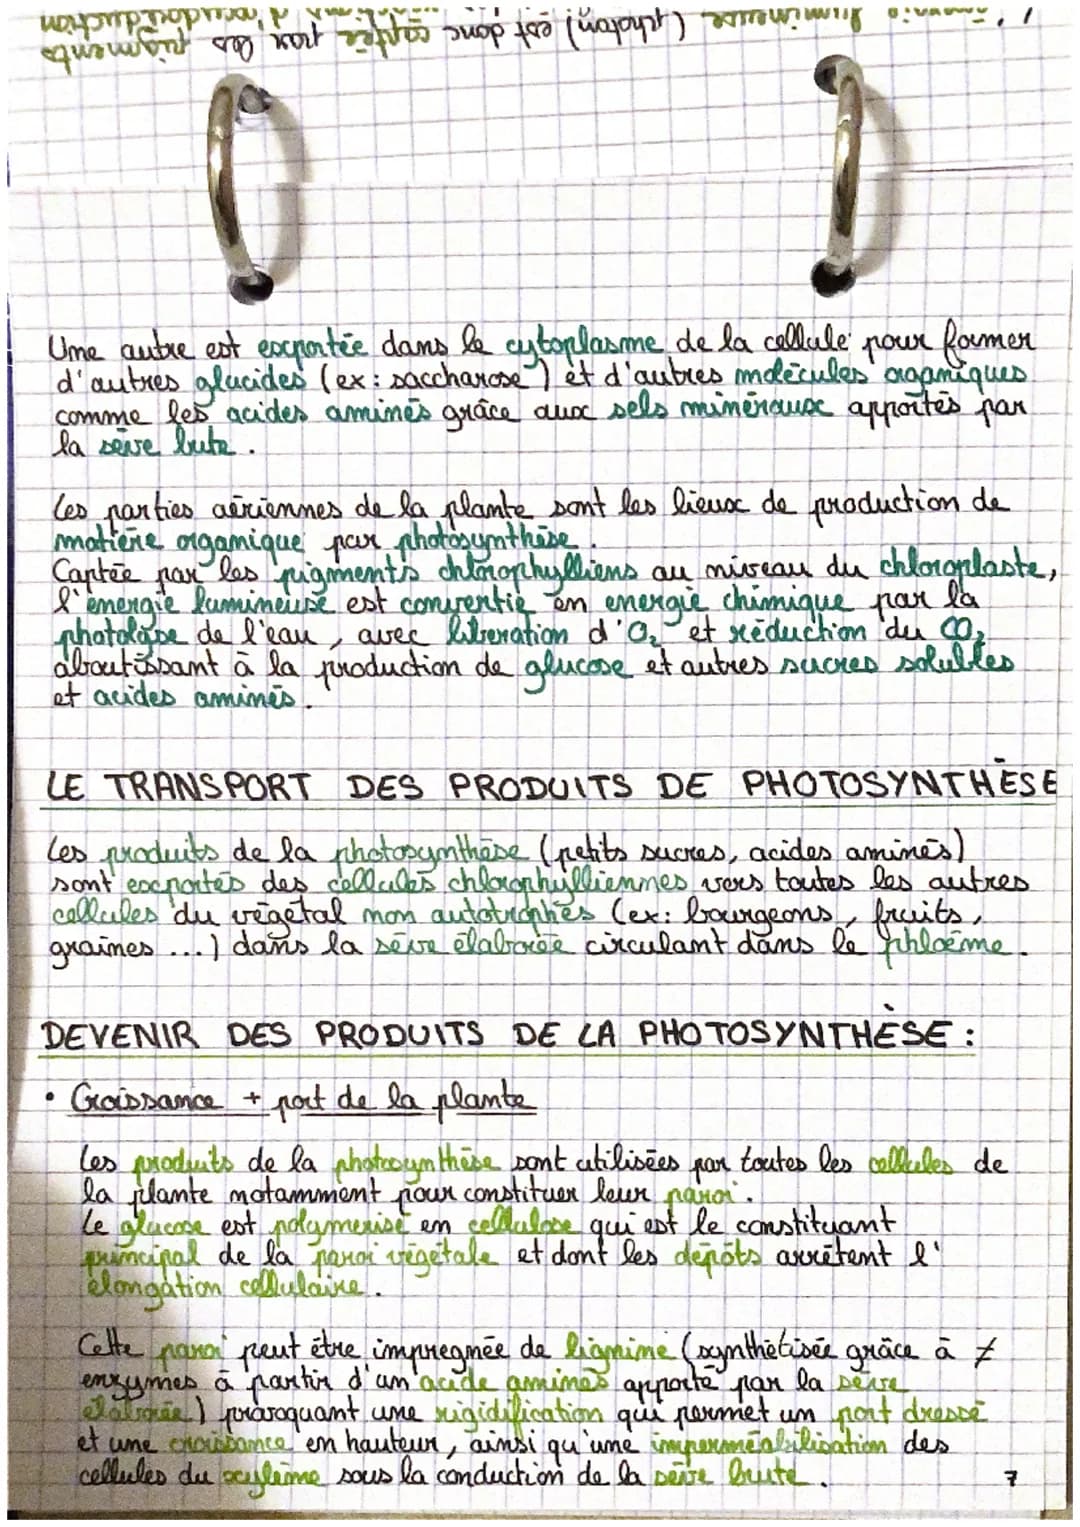 énergie lumineuse (photon) est donc captée par les pigments
d'oxydoréduction
Une autre est exportée dans le cytoplasme de la cellule pour former
d'autres glucides (ex : saccharose) et d'autres molécules organiques
comme les acides aminés grâce aux sels minéraux apportés par
la sève bute.
Les parties aériennes de la plante sont les lieux de production de
matière organique par photosynthèse.
Captée par les pigments chlorophylliens au niveau du chloroplaste,
l'énergie lumineuse est convertie en energie chimique par la
photolyse de l'eau, avec libération d'O₂ et réduction du CO₂
aboutissant à la production de glucose et autres sucres solubles
et acides aminés.
LE TRANSPORT DES PRODUITS DE PHOTOSYNTHÈSE
Les produits de la photosynthèse (petits sucres, acides aminés)
sont exportés des cellules chlorophylliennes vers toutes les autres
cellules du végétal non autotrophes (ex: bourgeons, fruits,
graines ...) dans la sève élaborée circulant dans le phloème.
DEVENIR DES PRODUITS DE LA PHOTOSYNTHÈSE :
• Croissance + port de la plante
Les produits de la photosynthèse sont utilisées par toutes les cellules de
la plante notamment pour constituer leur paroi.
Le glucose est polymérisé en cellulose qui est le constituant
principal de la paroi végétale et dont les dépôts arrêtent l'
élongation cellulaire.
Cette paroi peut être impregnée de lignine (synthétisée grâce à ≠
enzymes à partir d'un acide aminés apporté par la sève
élaborée) provoquant une rigidification qui permet un port dressé
et une croissance en hauteur, ainsi qu'une imperméabilisation des
cellules du xylème sous la conduction de la sève brute.
7